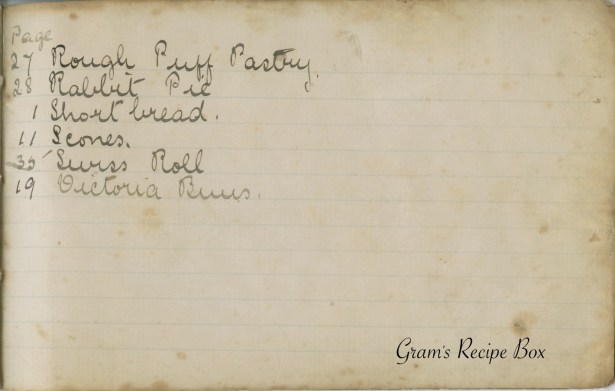 Page
27 Rough Puff Pastry.
28 Rabbit Pie
1 Short bread.
11 Scones.
35 Swiss Roll
19 Victoria Buns.
Gram's Recipe Box